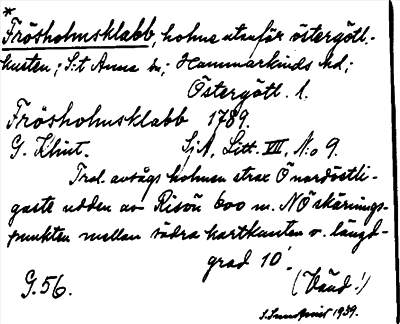 *
Frösholmsklabb, holme utanför östergötl.-
kusten; S:t Anna sn; Hammarkinds hd;
Östergötl. l.
Frösholmsklabb 1789.
G. Klint. SjA, Litt. VII, N:o 9.
Trol. avságs holmen strax Ö nordöstli-
gaste udden av Risön 600 m. NÖ skärnings-
punkten mellan södra kartkanten o. längd-
grad 10'.
G. 56. (Vänd!)
1939.